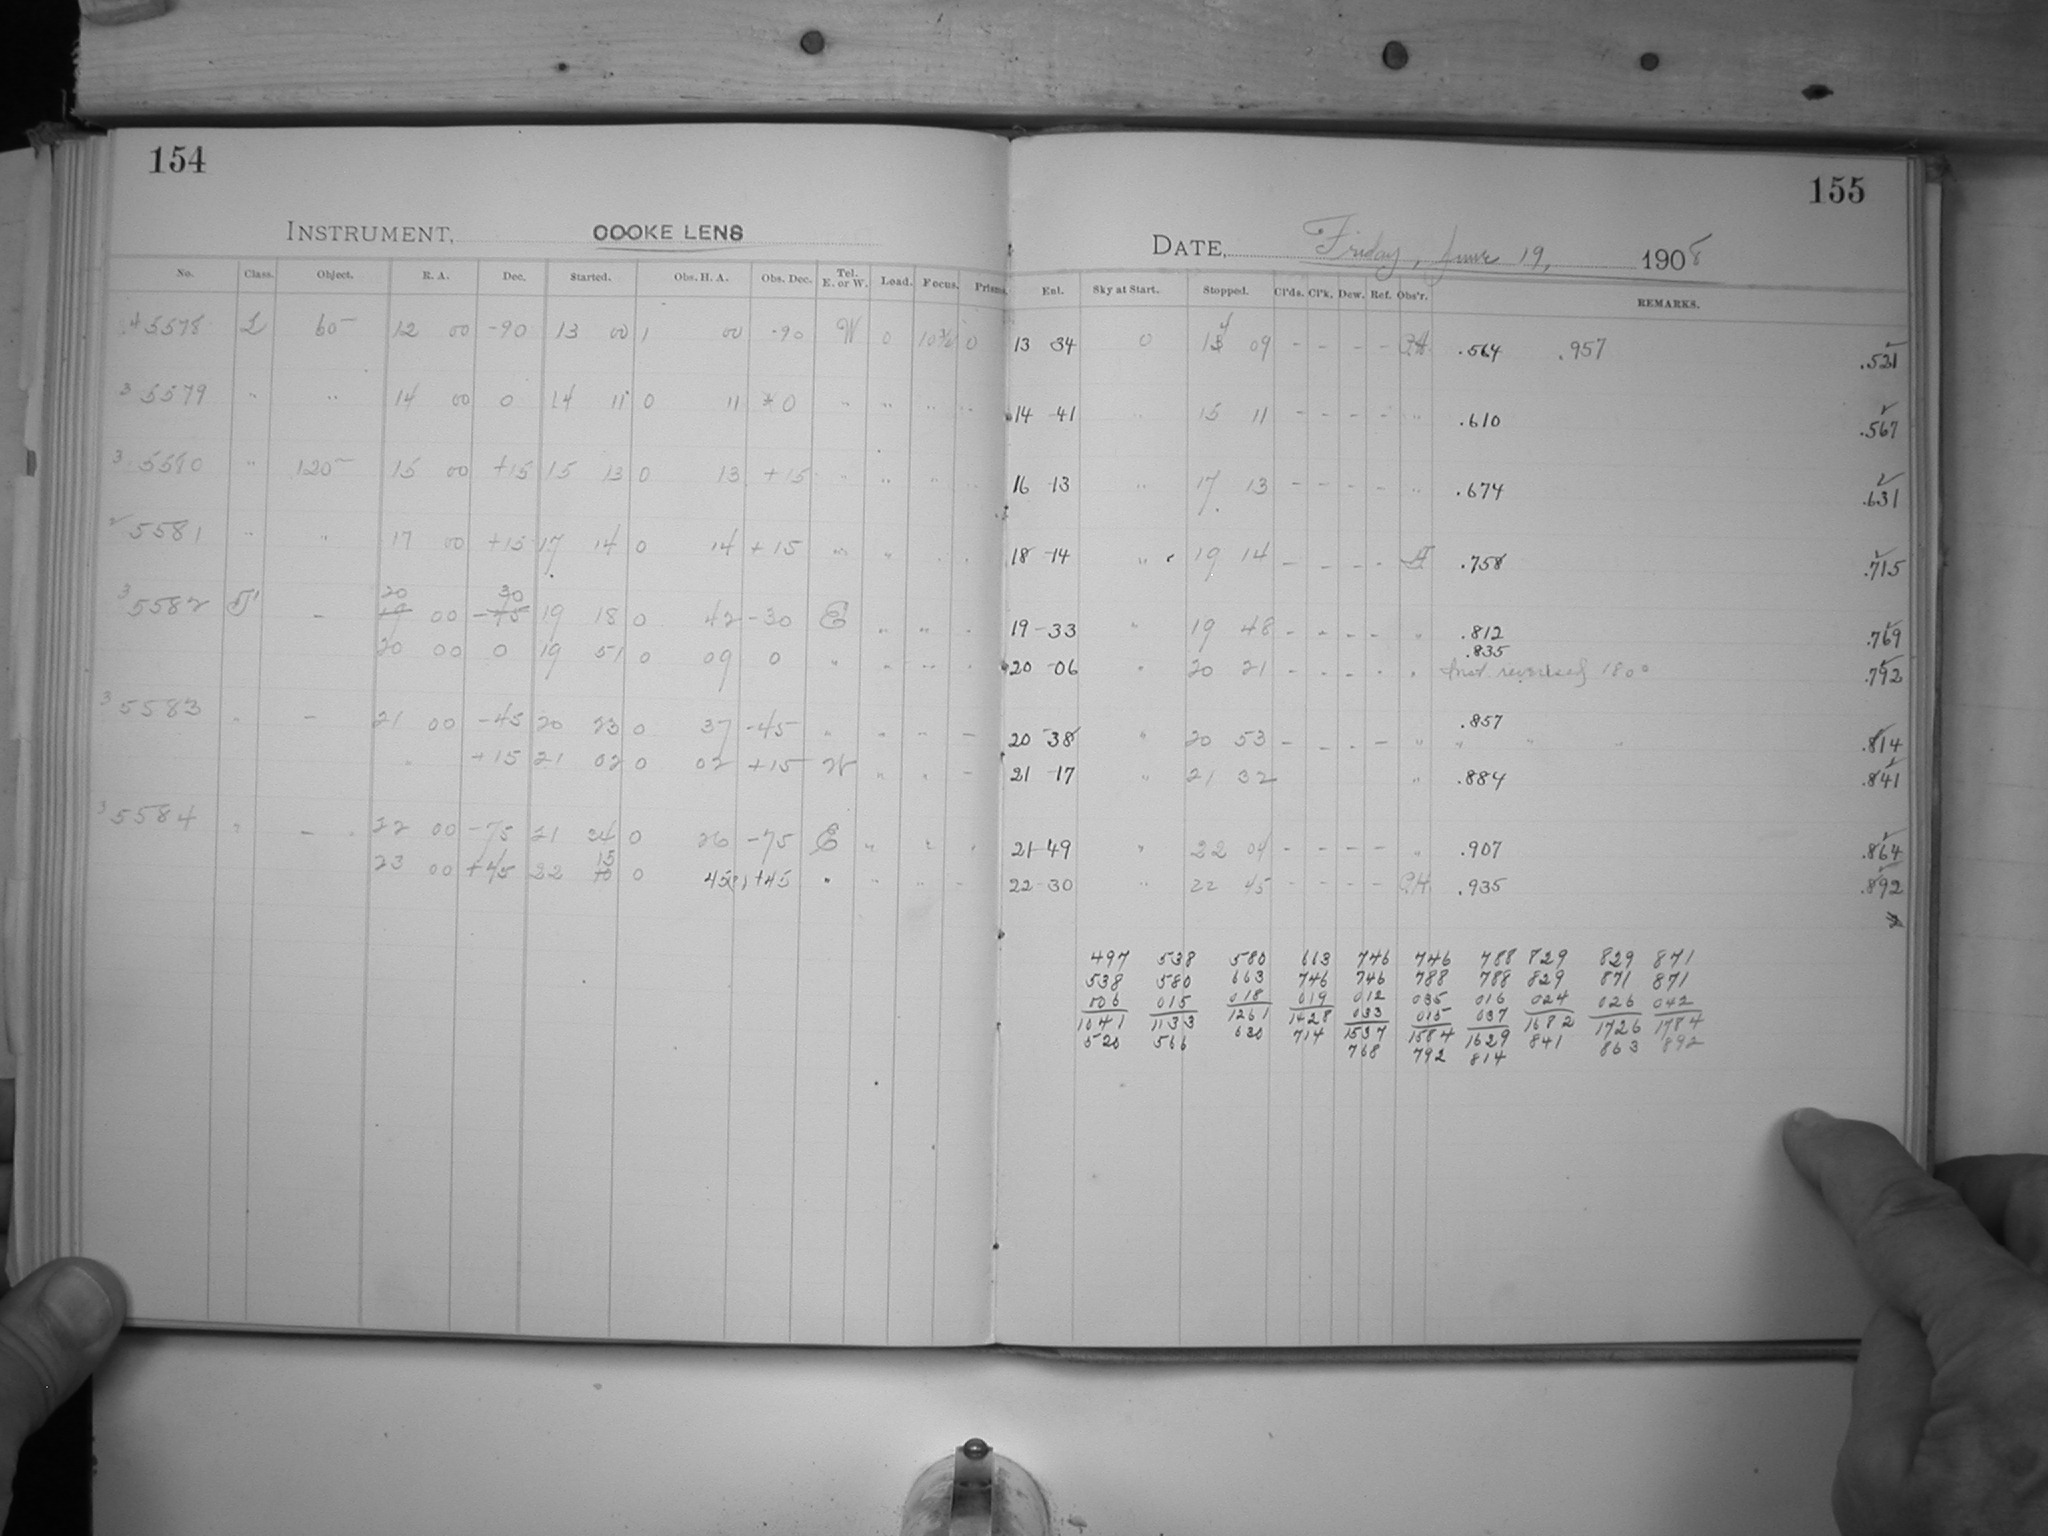 154
INSTRUMENT, COOKE LENS
No. Class. Object. R. A. Dec. Started. Obs. H. A. Obs. Dec. Tel. E. or W. Load. Focus. Prisms.
5578 L 60 12 00 -90 13 00 1 00 -90 W 0 0
3 5579 " " 14 00 0 14 11 0 11 0 " " " "
3 5580 " 120 15 00 +15 15 13 0 13 +15 " " " "
5581 " " 17 00 +15 17 14 0 14 +15 " " " "
20 30
3 5582 - 19 00 -45 19 18 0 42 -30 E " " "
20 00 0 19 51 0 09 0 " " " "
3 5583 " - 21 00 -45 20 23 0 37 -45 " " " -
" +15 21 02 0 02 +15 W " " -
3 5584 " - 22 00 -75 21 24 0 26 -75 E " " "
15
23 00 +45 22 10 0 45 +45 " " " -
155
DATE, Friday, June 19, 1908
Enl. Sky at Start. Stopped. Cl'ds. Cl'k. Dew. Ref. Obs'r. REMARKS.
13 34 0 09 - - - - .564 .957 .521
14 41 " 15 11 - - - - " .610 .567
16 13 " 17 13 - - - - " .674 .631
18 14 " 19 14 - - - - .758 .715
19 - 33 " 19 48 - - - - " .812 .769
.835
20 06 " 20 21 - - - - " Inst. reversed 180° .792
.857
20 38 " 20 53 - - - - " " " " .814
21 - 17 " 21 32 " .884 .841
21 49 " 22 04 - - - - " .907 .864
22 - 30 " 22 45 .935 .892
497 538 580 663 746 746 788 829 829 871
538 580 663 746 746 788 788 829 871 871
006 015 018 019 012 035 016 024 026 042
1041 1133 1261 1428 033 015 037 1682 1726 1784
520 566 630 714 1537 1584 1629 841 863 892
768 792 814